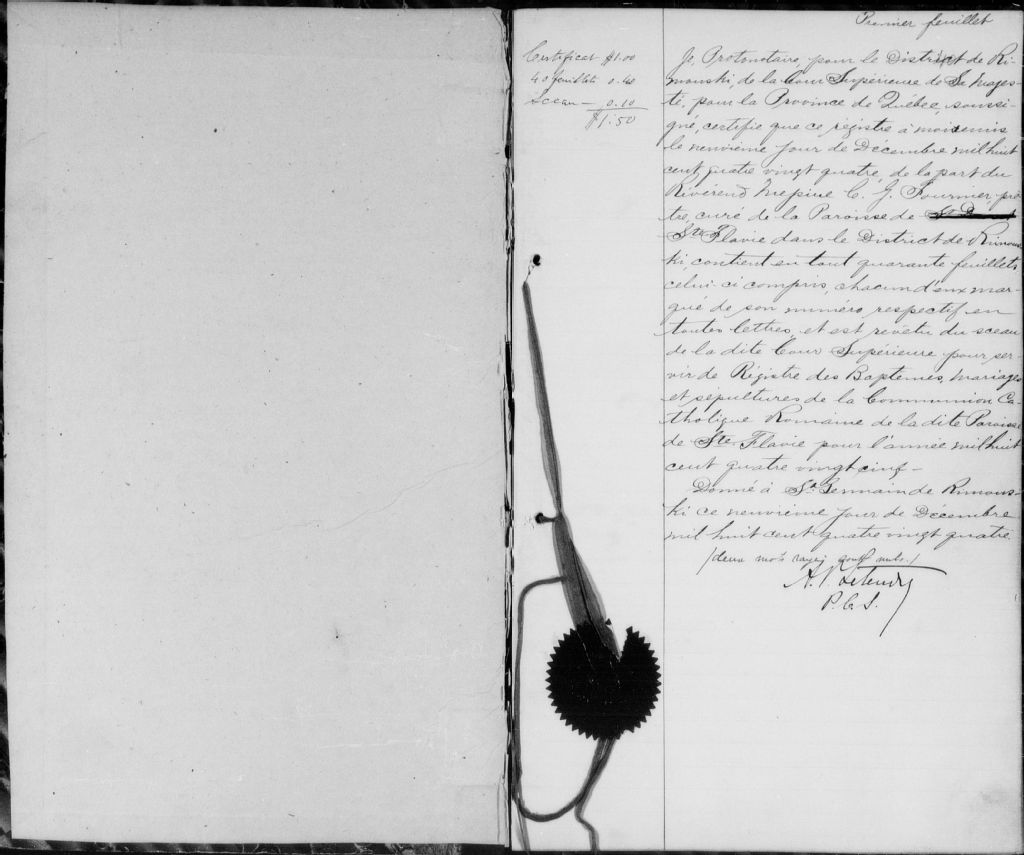 Premier feuillet
Certificat $1.00
40 feuillets 0.40
Sceau — 0.10
$1.50
Je, Protonotaire, pour le District de Ri-
mouski, de la Cour Supérieure de Sa Majes-
té, pour la Province de Québec, soussi-
gné, certifie que ce régistre à moi remis
le neuvième jour de Décembre mil huit
cent quatre vingt quatre, de la part du
Révérend Messire C. J. Fournier, prê-
tre, curé de la Paroisse de St D
Ste Flavie dans le District de Rimous-
ki, contient en tout quarante feuillets
celui-ci compris, chacun d'eux mar-
qué de son numéro respectif en
toutes lettres, et est revêtu du sceau
de la dite Cour Supérieure pour ser-
vir de Régistre des Baptêmes, Mariages
et sépultures de la Communion Ca-
tholique Romaine de la dite Paroisse
de Ste Flavie pour l'année mil huit
cent quatre vingt cinq —
Donné à St Germain de Rimous-
ki ce neuvième jour de Décembre
mil huit cent quatre vingt quatre
/deux mots rayés sont nuls./
A. P. Letendre
P. C. S.